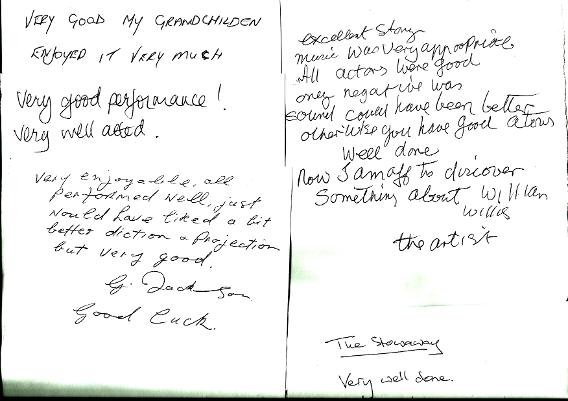 VERY GOOD MY GRANDCHILDEN
ENJOYED IT VERY MUCH
Very good performance!
Very well acted.
Very enjoyable, all
performed well, just
would have liked a bit
better diction & projection
but very good.
G. Jackson
Good Luck.
excellent Story
music was very appropriate
All actors were good
only negative was
sound could have been better
otherwise you have good actors
Well done
now I am off to discover
Something about Willian
Willis
the artist
The Stowaway
Very well done.